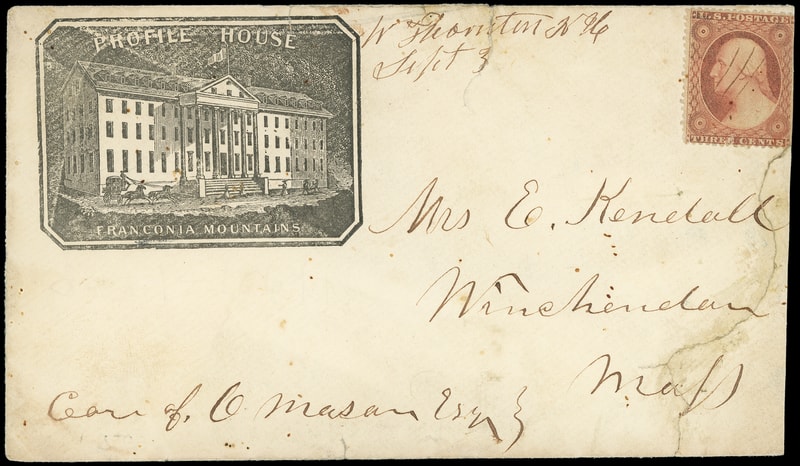 PROFILE HOUSE
FRANCONIA MOUNTAINS
W Thornton N H
Sept 3
U.S. POSTAGE
THREE CENTS
Mrs E. Kendall
Winchendon
Mass
Care of O Mason Esq